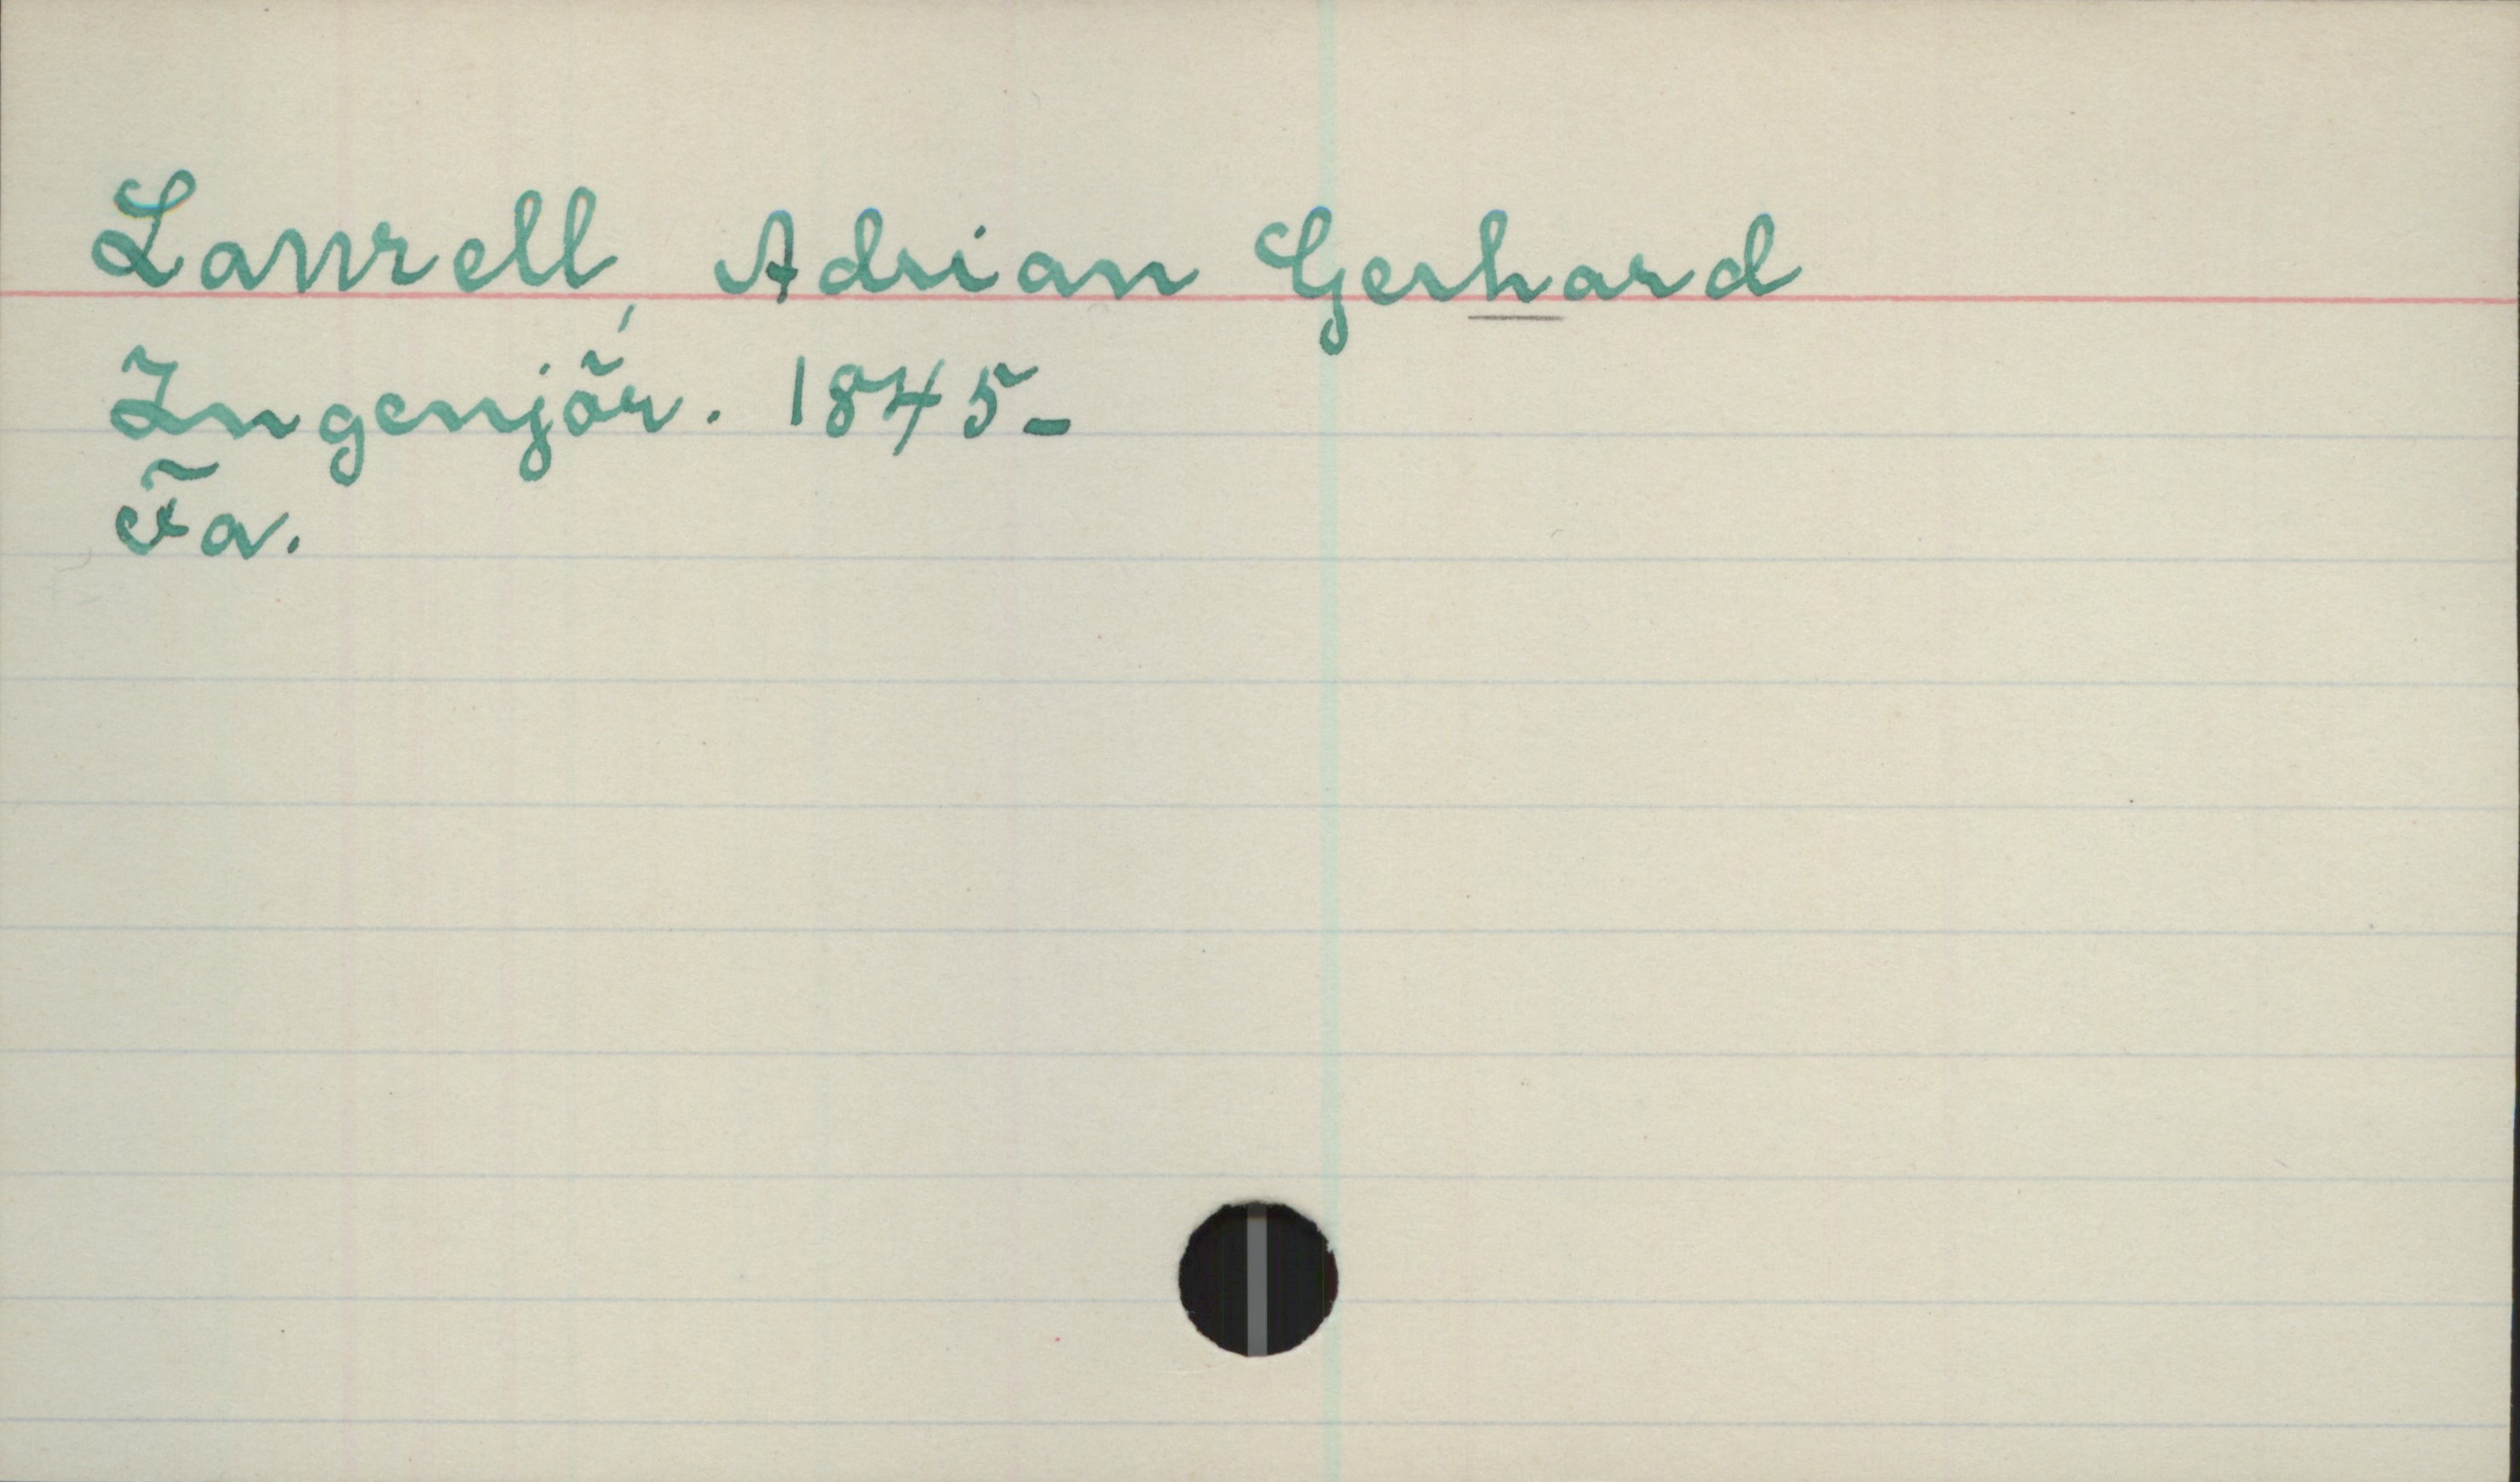 Laurell, Adrian Gerhard
Ingenjör. 1845-
Fa.